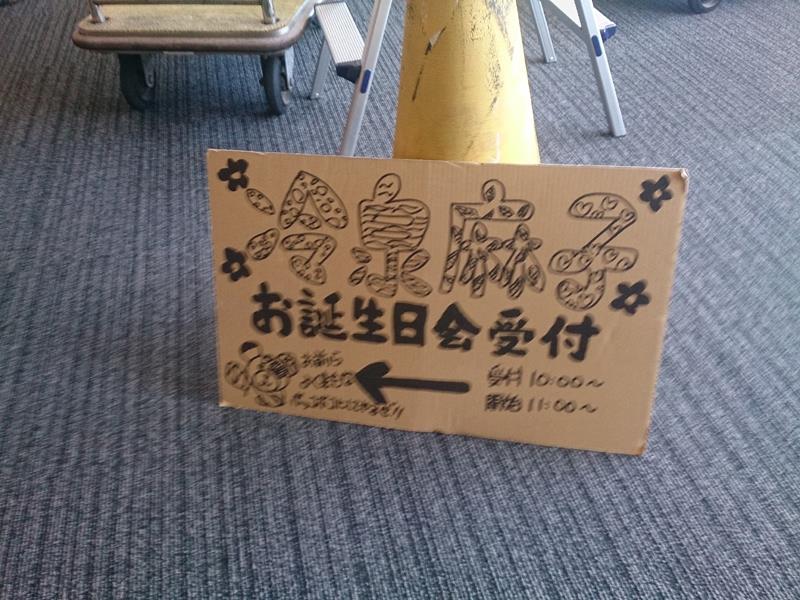 冷泉麻子
お誕生日会受付
受付 10:00〜
開始 11:00〜